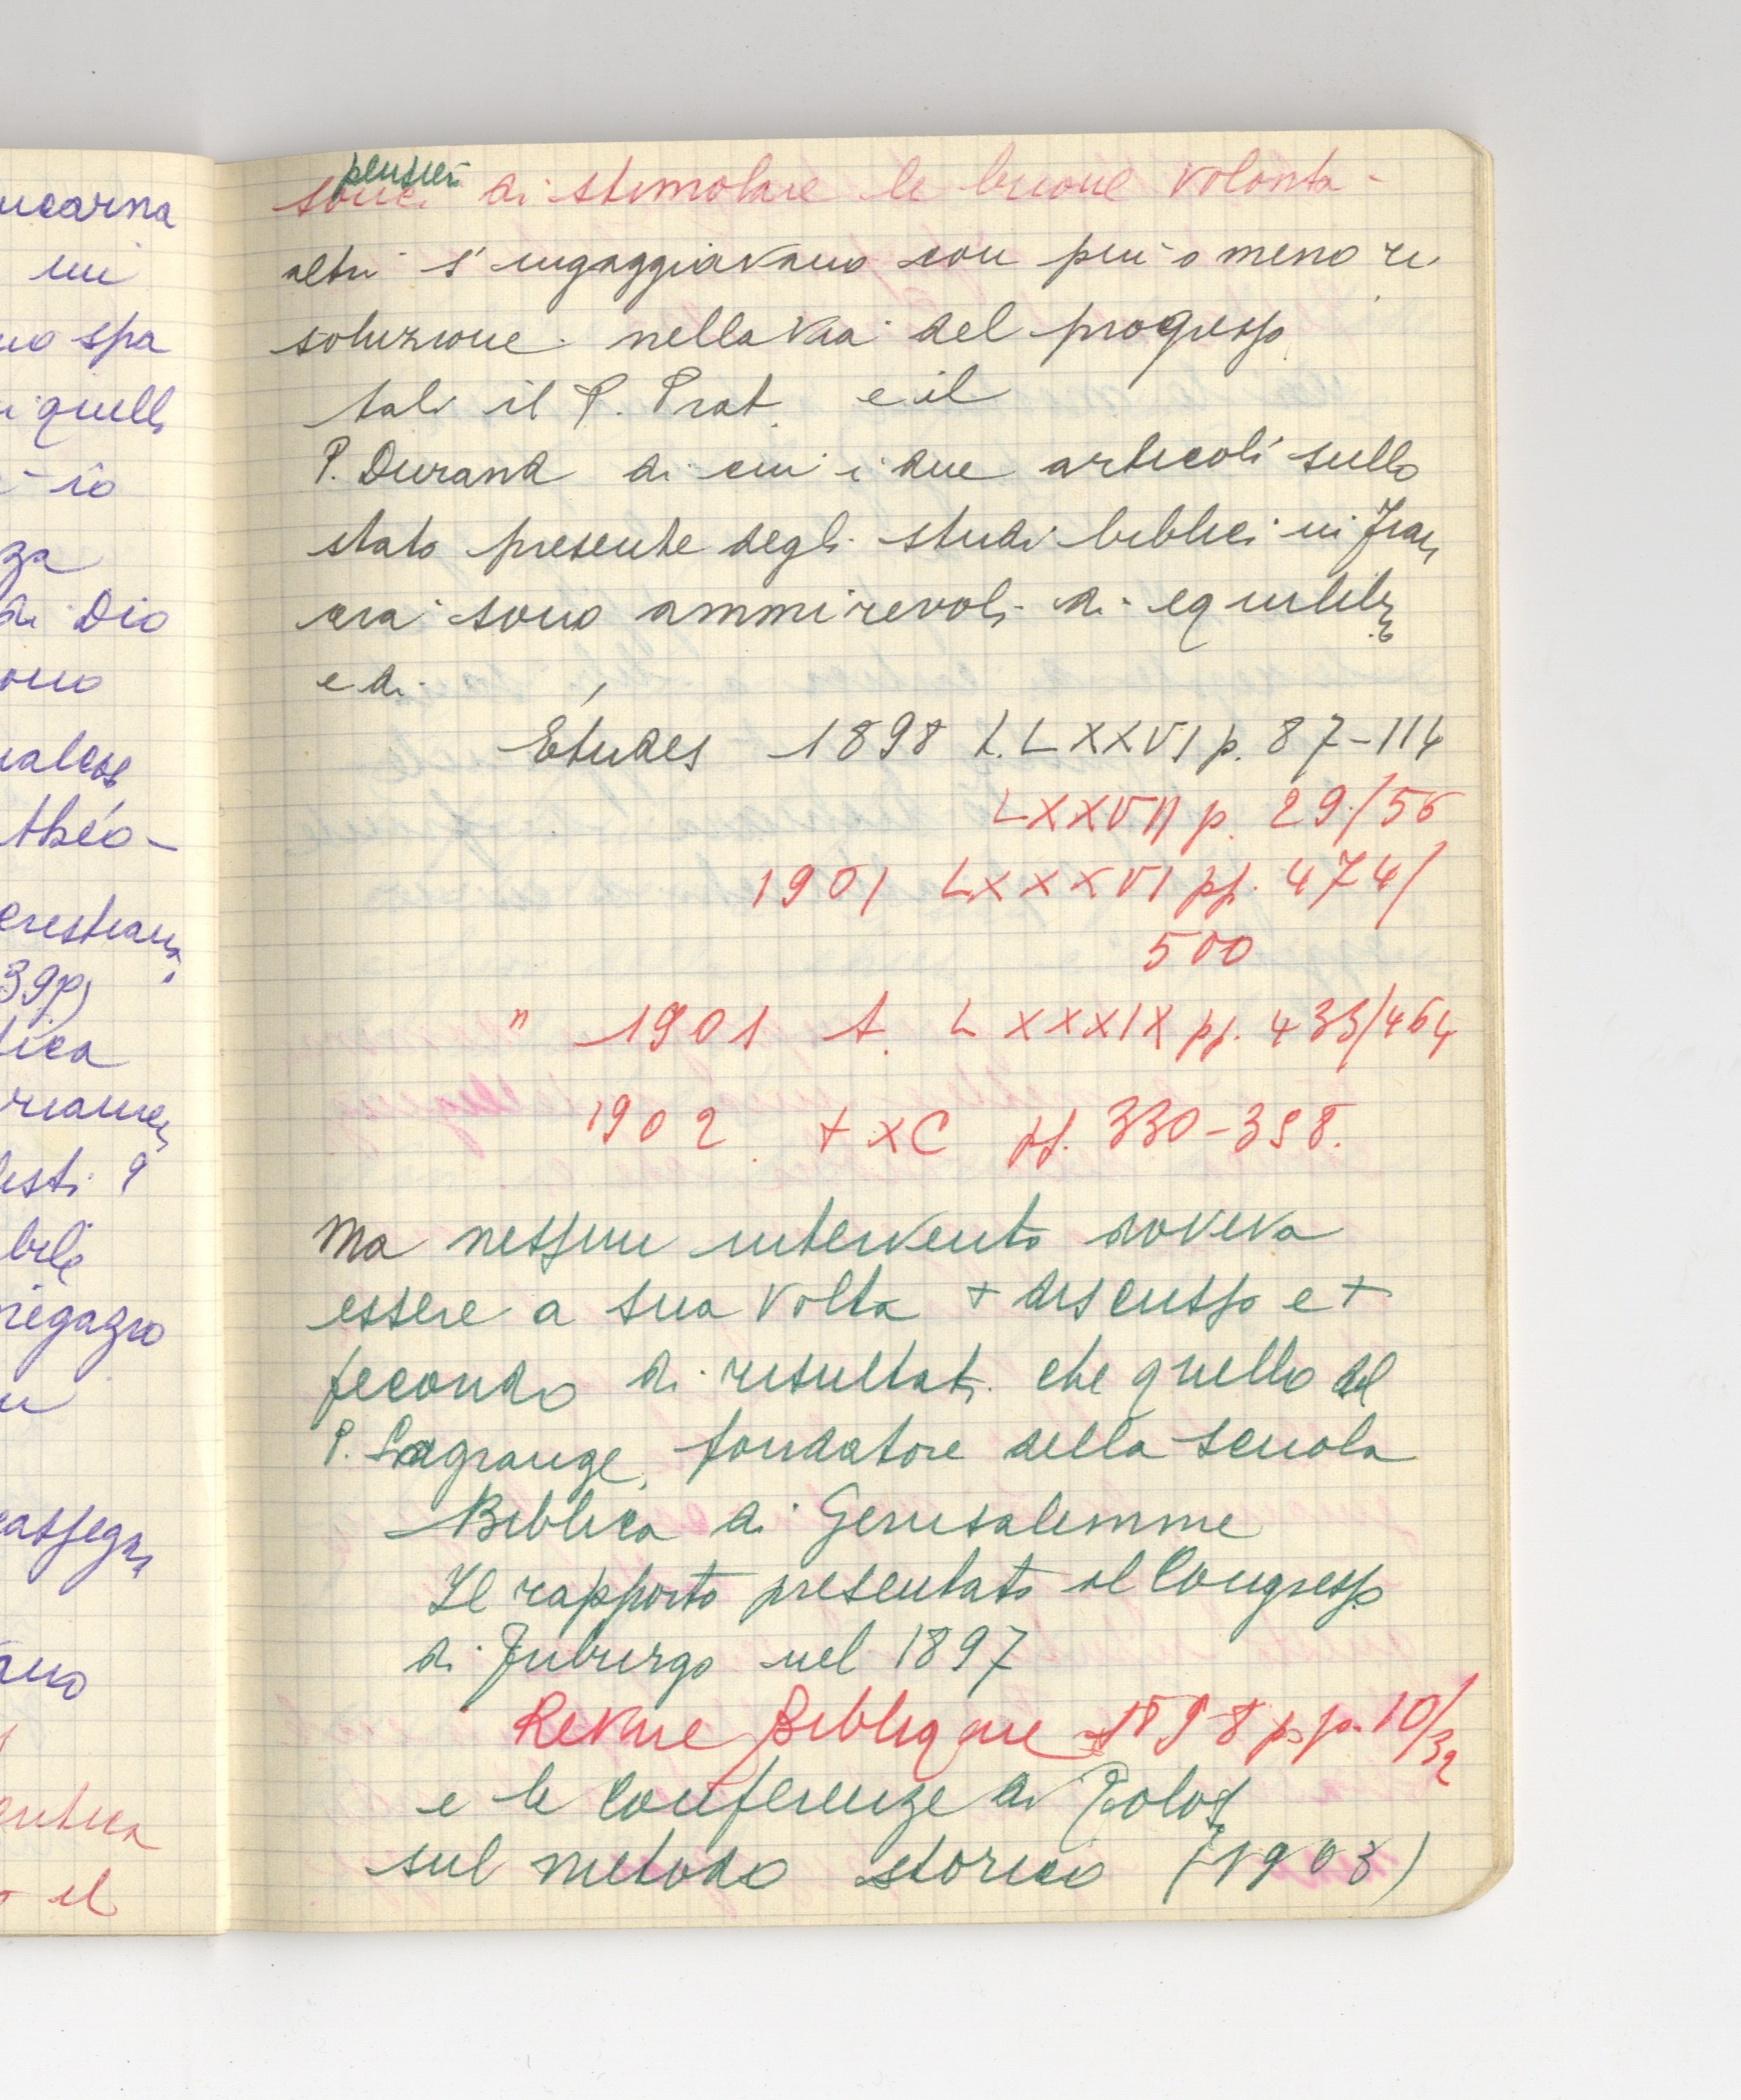 ucarna
ui
no spa
quells
io
za
di Dio
ono
ualcos
théo-
cristians
39p)
tica
riamen
esti ?
bile
negazio
cassegn
ano
critica
el
pensieri
souci di stimolare le buone volontà -
altri s'ingaggiavano con più o meno ri
soluzione nella via del progresso
tali il P. Prat e il
P. Durand di cui i due articoli sullo
stato presente degli studi biblici in Fran
cia sono ammirevoli di equilibrio
e di
Études 1898 t. LXXVI p. 87-114
LXXVII p. 29/56
1901 LXXXVI pp. 474/
500
" 1901 t. LXXXIX pp. 433/464
1902 t XC pp. 330-358.
Ma nessun intervento doveva
essere a sua volta + discusso e +
fecondo di risultati che quello del
P. Lagrange, fondatore della scuola
Biblica di Gerusalemme
Il rapporto presentato al Congresso
di Friburgo nel 1897
Revue Biblique 1898 pp. 10/32
e le conferenze di Tolos
sul metodo storico (1903)